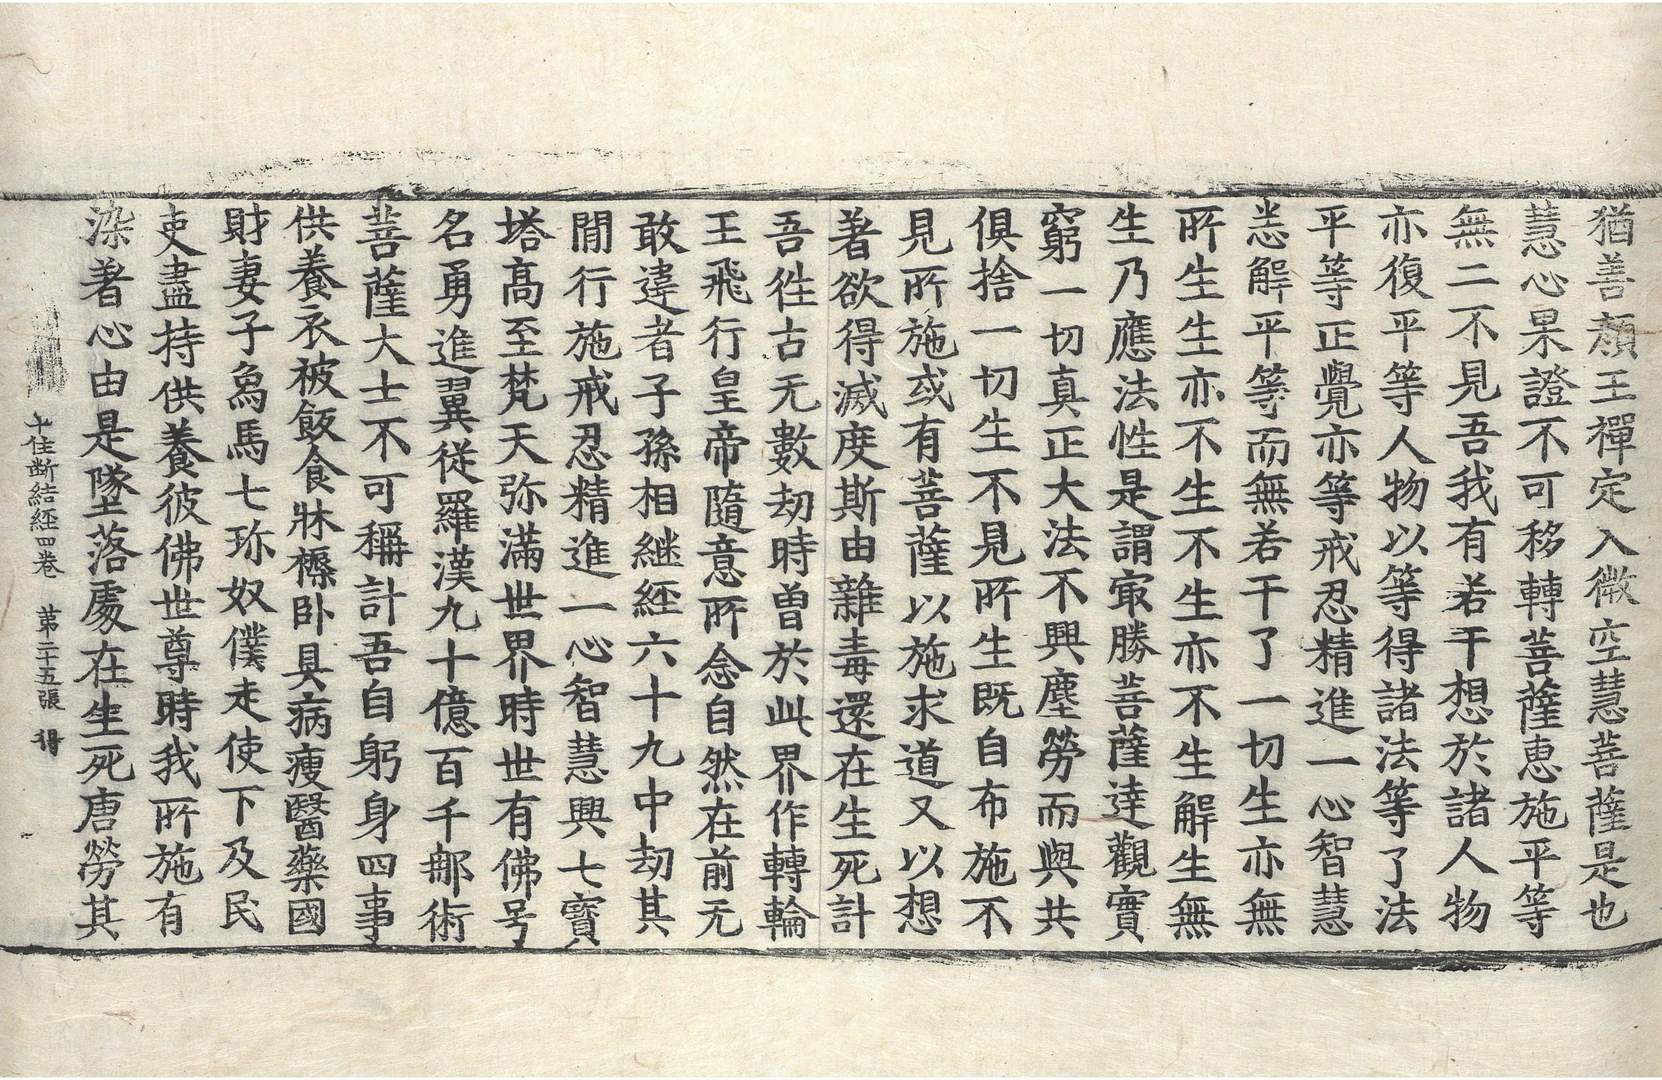 猶善顏王禪定入微空慧菩薩是也
慧心果證不可移轉菩薩惠施平等
無二不見吾我有若干想於諸人物
亦復平等人物以等得諸法等了法
平等正覺亦等戒忍精進一心智慧
恙解平等而無若干了一切生亦無
所生生亦不生不生亦不生解生無
生乃應法性是謂㝡勝菩薩達觀實
窮一切真正大法不興塵勞而與共
俱捨一切生不見所生既自布施不
見所施或有菩薩以施求道又以想
著欲得滅度斯由雜毒還在生死計
吾往古无數劫時曾於此界作轉輪
王飛行皇帝隨意所念自然在前无
敢違者子孫相継経六十九中劫其
閒行施戒忍精進一心智慧興七寶
塔高至梵天弥滿世界時世有佛号
名勇進翼従羅漢九十億百千那術
菩薩大士不可稱計吾自躬身四事
供養衣被飯食牀褥卧具病瘦醫藥國
財妻子象馬七珎奴僕走使下及民
吏盡持供養彼佛世尊時我所施有
染著心由是墜落處在生死唐勞其
十住断結経四卷 第二十五張 得